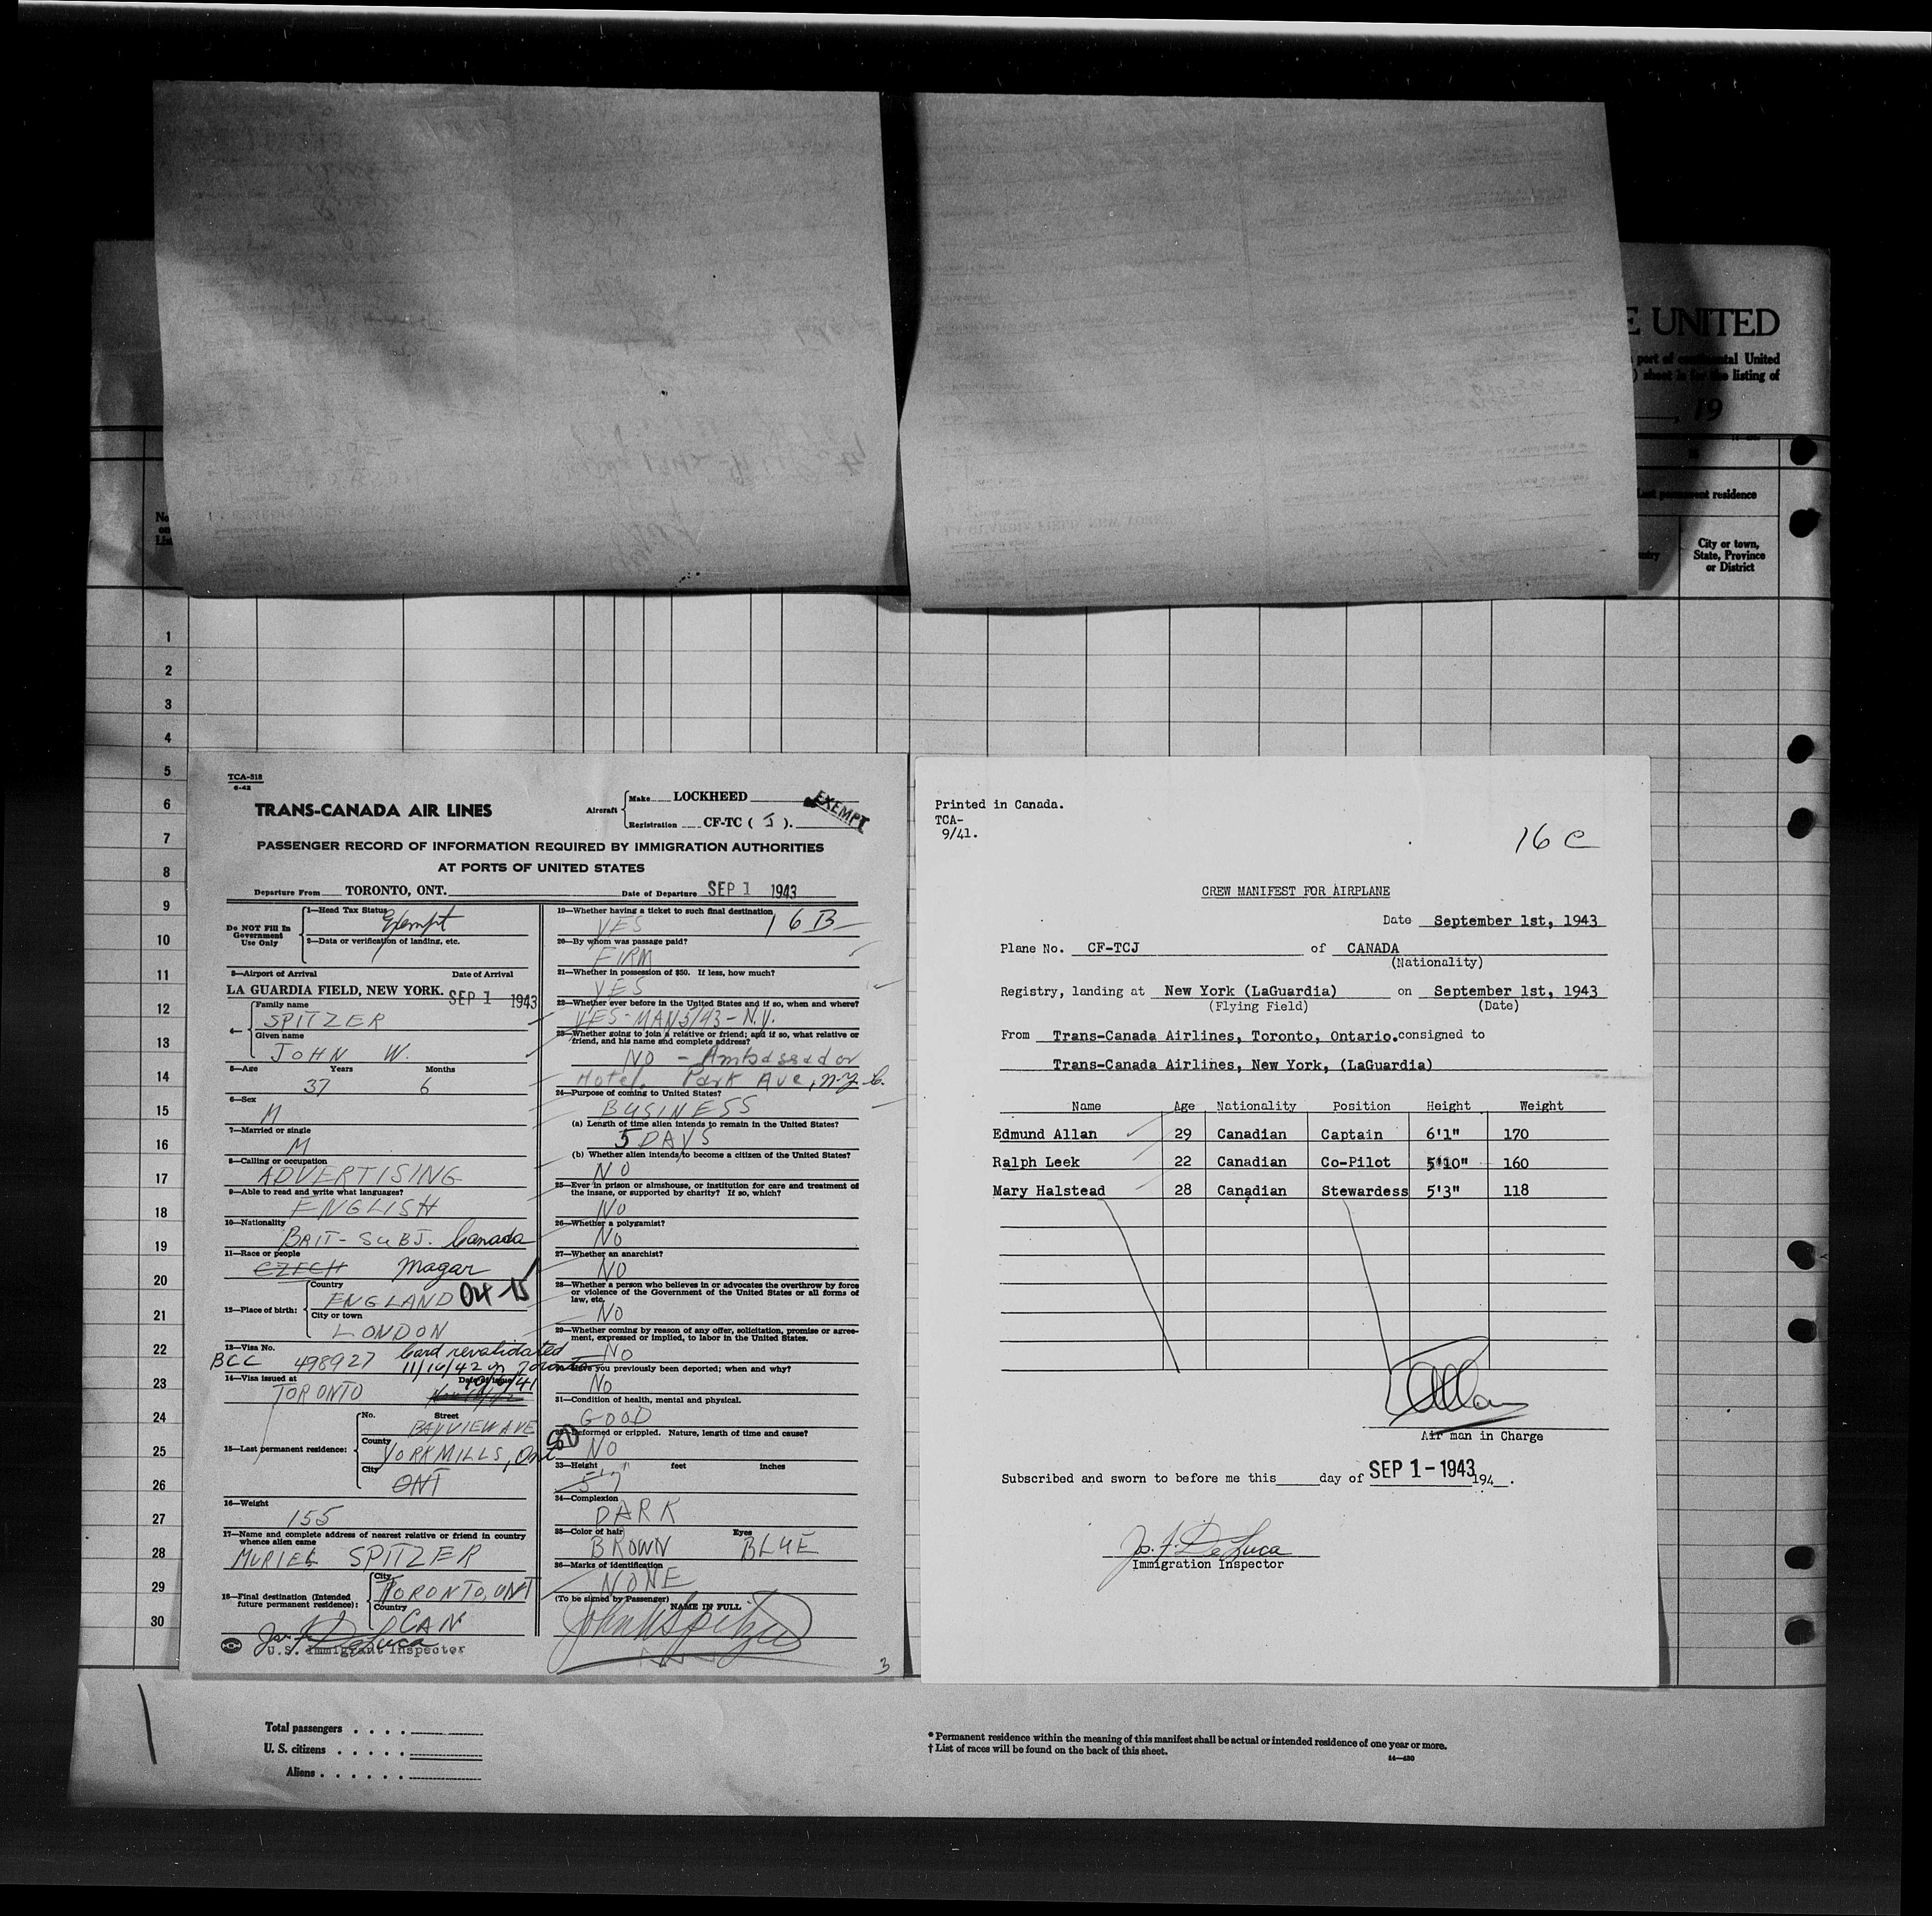 E UNITED
port of continental United
) sheet is for the listing of
, 19
Last permanent residence
No.
on
List
City or town,
State, Province
or District
1
2
3
4
5
6
7
8
9
10
11
12
13
14
15
16
17
18
19
20
21
22
23
24
25
26
27
28
29
30
TCA-518
6-42
TRANS-CANADA AIR LINES
Aircraft
Make LOCKHEED
Registration CF-TC ( J ).
EXEMPT
PASSENGER RECORD OF INFORMATION REQUIRED BY IMMIGRATION AUTHORITIES
AT PORTS OF UNITED STATES
Departure From TORONTO, ONT. Date of Departure SEP 1 1943
Do NOT Fill In
Government
Use Only
1—Head Tax Status
Exempt
2—Data or verification of landing, etc.
3—Airport of Arrival Date of Arrival
LA GUARDIA FIELD, NEW YORK. SEP 1 1943
4—
Family name
SPITZER
Given name
JOHN W.
5—Age Years Months
37 6
6—Sex
M
7—Married or single
M
8—Calling or occupation
ADVERTISING
9—Able to read and write what languages?
ENGLISH
10—Nationality
BRIT-SUBJ. Canada
11—Race or people
CZECH Magar
12—Place of birth:
Country
ENGLAND 04-15
City or town
LONDON
13—Visa No.
BCC 498927 Card revalidated
11/16/42 in Toronto
14—Visa issued at Date of issue
TORONTO 10/6/41
15—Last permanent residence:
No. Street
BAYVIEW AVE
County
YORK MILLS, Ont
City
ONT
16—Weight
155
17—Name and complete address of nearest relative or friend in country
whence alien came
MURIEL SPITZER
18—Final destination (Intended
future permanent residence):
City
TORONTO, ONT
Country
CAN
Jos. F. DeLuca
U.S. Immigrant Inspector
19—Whether having a ticket to such final destination
YES 16B
20—By whom was passage paid?
FIRM
21—Whether in possession of $50. If less, how much?
YES
22—Whether ever before in the United States and if so, when and where?
YES-MAY 5/43-N.Y.
23—Whether going to join a relative or friend; and if so, what relative or
friend, and his name and complete address?
NO - Ambassador
Hotel. Park Ave, N.Y.C.
24—Purpose of coming to United States?
BUSINESS
(a) Length of time alien intends to remain in the United States?
5 DAYS
(b) Whether alien intends to become a citizen of the United States?
NO
25—Ever in prison or almshouse, or institution for care and treatment of
the insane, or supported by charity? If so, which?
NO
26—Whether a polygamist?
NO
27—Whether an anarchist?
NO
28—Whether a person who believes in or advocates the overthrow by force
or violence of the Government of the United States or all forms of
law, etc.
NO
29—Whether coming by reason of any offer, solicitation, promise or agree-
ment, expressed or implied, to labor in the United States.
NO
Have you previously been deported; when and why?
NO
31—Condition of health, mental and physical.
GOOD
Deformed or crippled. Nature, length of time and cause?
NO
33—Height feet inches
5'7"
34—Complexion
DARK
35—Color of hair Eyes
BROWN BLUE
36—Marks of identification
NONE
(To be signed by Passenger) NAME IN FULL
John W Spitzer
3
Printed in Canada.
TCA-
9/41.
16 C
CREW MANIFEST FOR AIRPLANE
Date September 1st, 1943
Plane No. CF-TCJ of CANADA
(Nationality)
Registry, landing at New York (LaGuardia) on September 1st, 1943
(Flying Field) (Date)
From Trans-Canada Airlines, Toronto, Ontario.consigned to
Trans-Canada Airlines, New York, (LaGuardia)
Name Age Nationality Position Height Weight
Edmund Allan 29 Canadian Captain 6'1" 170
Ralph Leek 22 Canadian Co-Pilot 5'10" 160
Mary Halstead 28 Canadian Stewardess 5'3" 118
Air man in Charge
Subscribed and sworn to before me this day of SEP 1 - 1943 194 .
Jos. F. DeLuca
Immigration Inspector
Total passengers . . . .
U. S. citizens . . . . .
Aliens . . . . . .
* Permanent residence within the meaning of this manifest shall be actual or intended residence of one year or more.
† List of races will be found on the back of this sheet.
14—430